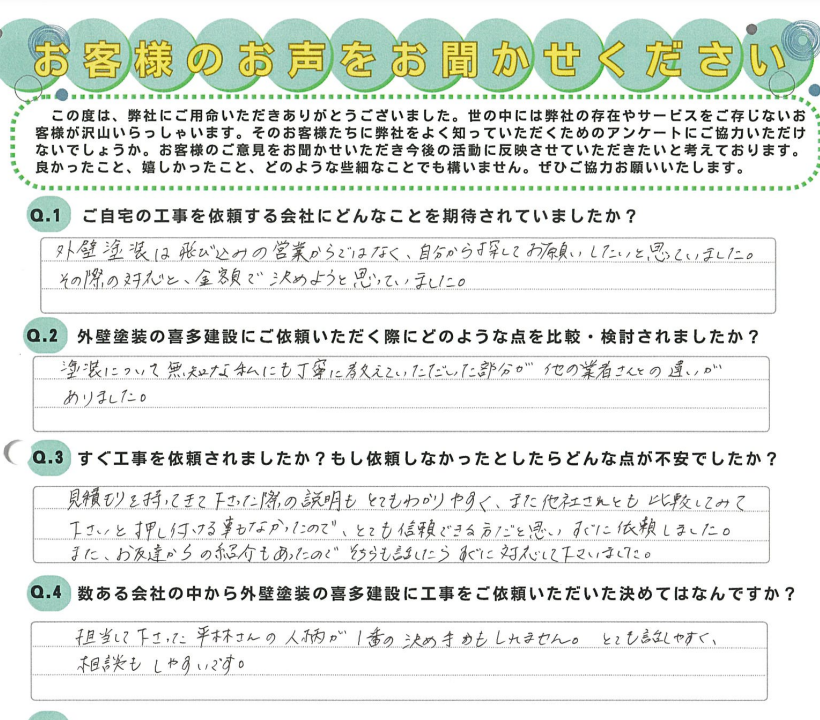 お客様のお声をお聞かせください
この度は、弊社にご用命いただきありがとうございました。世の中には弊社の存在やサービスをご存じないお
客様が沢山いらっしゃいます。そのお客様たちに弊社をよく知っていただくためのアンケートにご協力いただけ
ないでしょうか。お客様のご意見をお聞かせいただき今後の活動に反映させていただきたいと考えております。
良かったこと、嬉しかったこと、どのような些細なことでも構いません。ぜひご協力お願いいたします。
Q.1 ご自宅の工事を依頼する会社にどんなことを期待されていましたか？
外壁塗装は飛び込みの営業からではなく、自分から探してお願いしたいと思っていました。
その際の対応と、金額で決めようと思っていました。
Q.2 外壁塗装の喜多建設にご依頼いただく際にどのような点を比較・検討されましたか？
塗装について無知な私にも丁寧に教えていただいた部分が他の業者さんとの違いが
ありました。
Q.3 すぐ工事を依頼されましたか？もし依頼しなかったとしたらどんな点が不安でしたか？
見積もりを持ってきて下さった際の説明もとてもわかりやすく、また他社さんとも比較してみて
下さいと押し付ける事もなかったので、とても信頼できる方だと思いすぐに依頼しました。
また、お友達からの紹介もあったのでそちらも話したらすぐに対応して下さいました。
Q.4 数ある会社の中から外壁塗装の喜多建設に工事をご依頼いただいた決めてはなんですか？
担当して下さった平林さんの人柄が1番の決め手かもしれません。とても話しやすく、
相談もしやすいです。